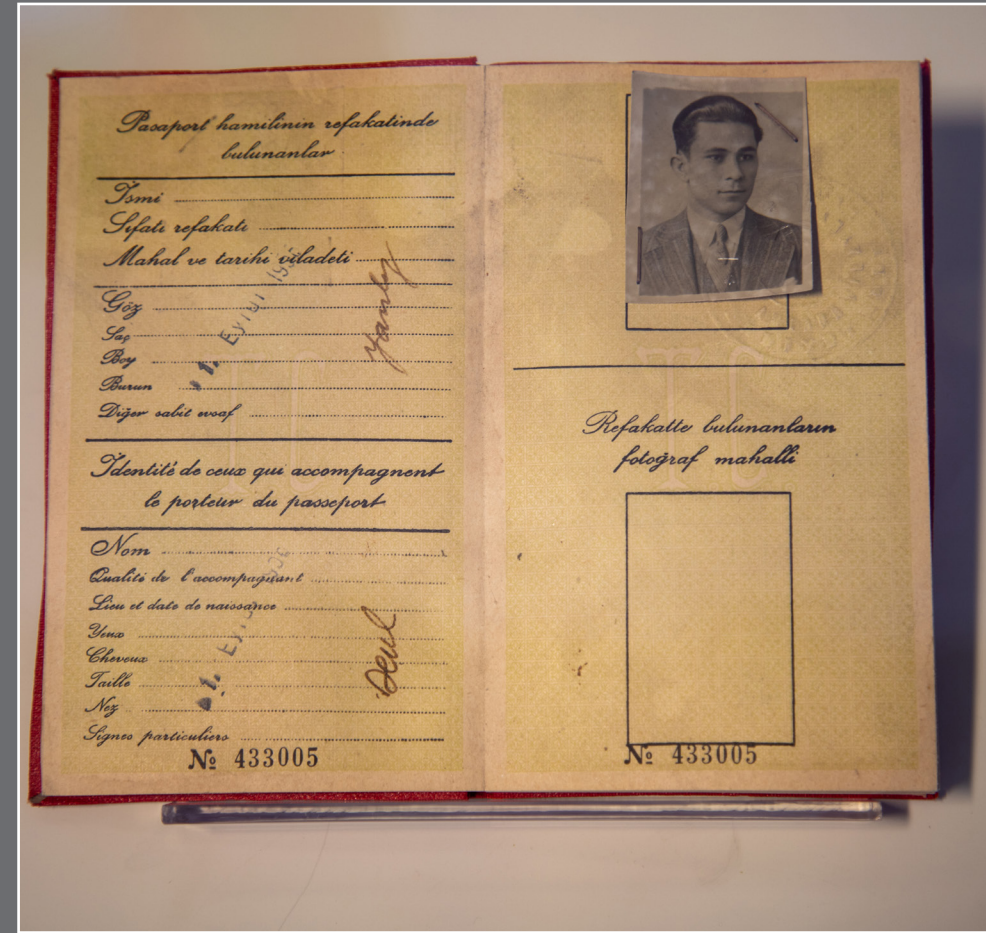 Pasaport hamilinin refakatinde
bulunanlar
İsmi
Sıfatı refakati
Mahal ve tarihi viladeti
Göz
Saç
Boy
Burun
Diğer sabit evsaf
1. Eylül
yanlız
Identité de ceux qui accompagnent
le porteur du passeport
Nom
Qualité de l'accompagnant
Lieu et date de naissance
Yeux
Cheveux
Taille
Nez
Signes particuliers
seul
№ 433005
TC
Refakatte bulunanların
fotoğraf mahalli
№ 433005